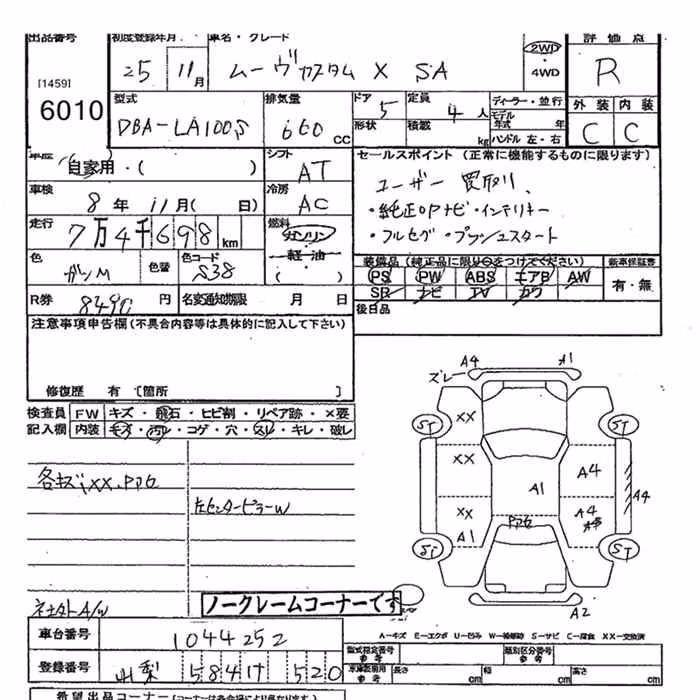 出品番号 初度登録年月 車名・グレード 評価点
[1459] 25 11月 ムーヴカスタム X SA 2WD ・4WD R
6010
型式 排気量 ドア 定員 ディーラー・並行 外装 内装
DBA-LA100S 660 CC 5 4 人 モデル年式 年 C C
形状 積載 kg ハンドル 左・右
車歴 自家用・( ) シフト AT セールスポイント (正常に機能するものに限ります)
車検 8年 11月( 日) 冷房 AC ユーザー 買取り
・純正OPナビ・インテリキー
走行 7万4千698km 燃料 ガソリン ・フルセグ・プッシュスタート
・軽油・
色 ガンM 色替 色コード S38 装備品 (純正品に限り○をつけてください) 新車保証書
PS PW ABS エアB AW 有・無
SR ナビ TV カワ
R券 8490円 名変通知期限 月 日 後日品
注意事項申告欄(不具合内容等は具体的に記入して下さい)
修復歴 有 〔箇所 〕
検査員 FW キズ・飛石・ヒビ割・リペア跡・×要
記入欄 内装 キズ・汚レ・コゲ・穴・スレ・キレ・破レ
A4 A1
ズレ
XX ST ST
XX A4
A1 A4
XX A4
A1 PPG
ST ST
A2
各キズ,XX.PPG
左センターピラーW
ネセタトA/W
ノークレームコーナーです
A-キズ E-エクボ U-凹み W-補修跡 S-サビ C-腐食 XX-交換済
車台番号 1044252 型式指定番号 参考 類別区分番号 参考
登録番号 山梨 584 520 車庫証明用 参考 長さ cm 幅 cm 高さ cm
希望出品コーナー